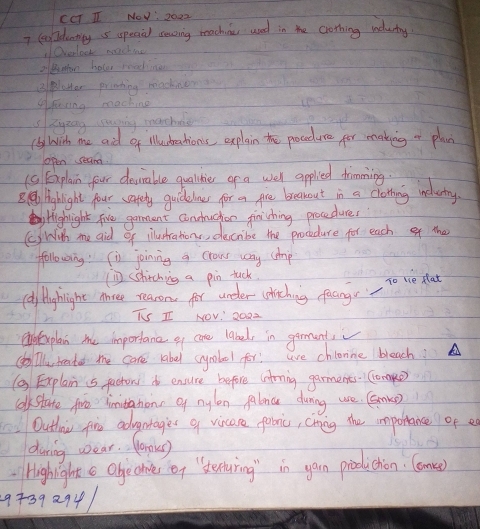 CCT II Nov: 2022
7 (a) Identify 5 special sewing machines used in the clothing industry
1 Overlock machine
2 Button holes machine
3 machine
4 machine
5 Zigzag sewing machine
(b) With the aid of illustrations, explain the procedure for making a plain
open seam.
(c) Explain four desirable qualities of a well applied trimming.
8 (a) Highlight four safety guidelines for a fire breakout in a clothing industry.
b) Highlight five garment construction finishing procedures.
(c) With the aid of illustrations, describe the procedure for each of the
following: (i) joining a cross way strip
(ii) stitching a pin tuck.
(d) Highlight three reasons for under stitching facings. ✓ To lie flat
TS II Nov: 2022
Explain the importance of care labels in garments. ✓
(b) Illustrate the care label symbol for: use chlorine bleach:
(c) Explain 5 factors to ensure before storing garments. (10mks)
(d) State five limitations of nylon fabrics during use. (5mks)
Outline five advantages of viscose fabric, citing the importance of ea
during wear. (10mks)
Highlight 6 Objectives of "texturing" in yarn production. (6mks)
9739294/